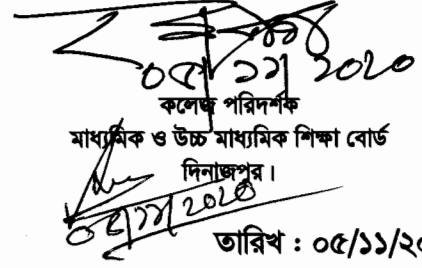 ০৫/১১/2020
কলেজ পরিদর্শক
মাধ্যমিক ও উচ্চ মাধ্যমিক শিক্ষা বোর্ড
দিনাজপুর।
০৫/১১/2020
তারিখ : ০৫/১১/২০